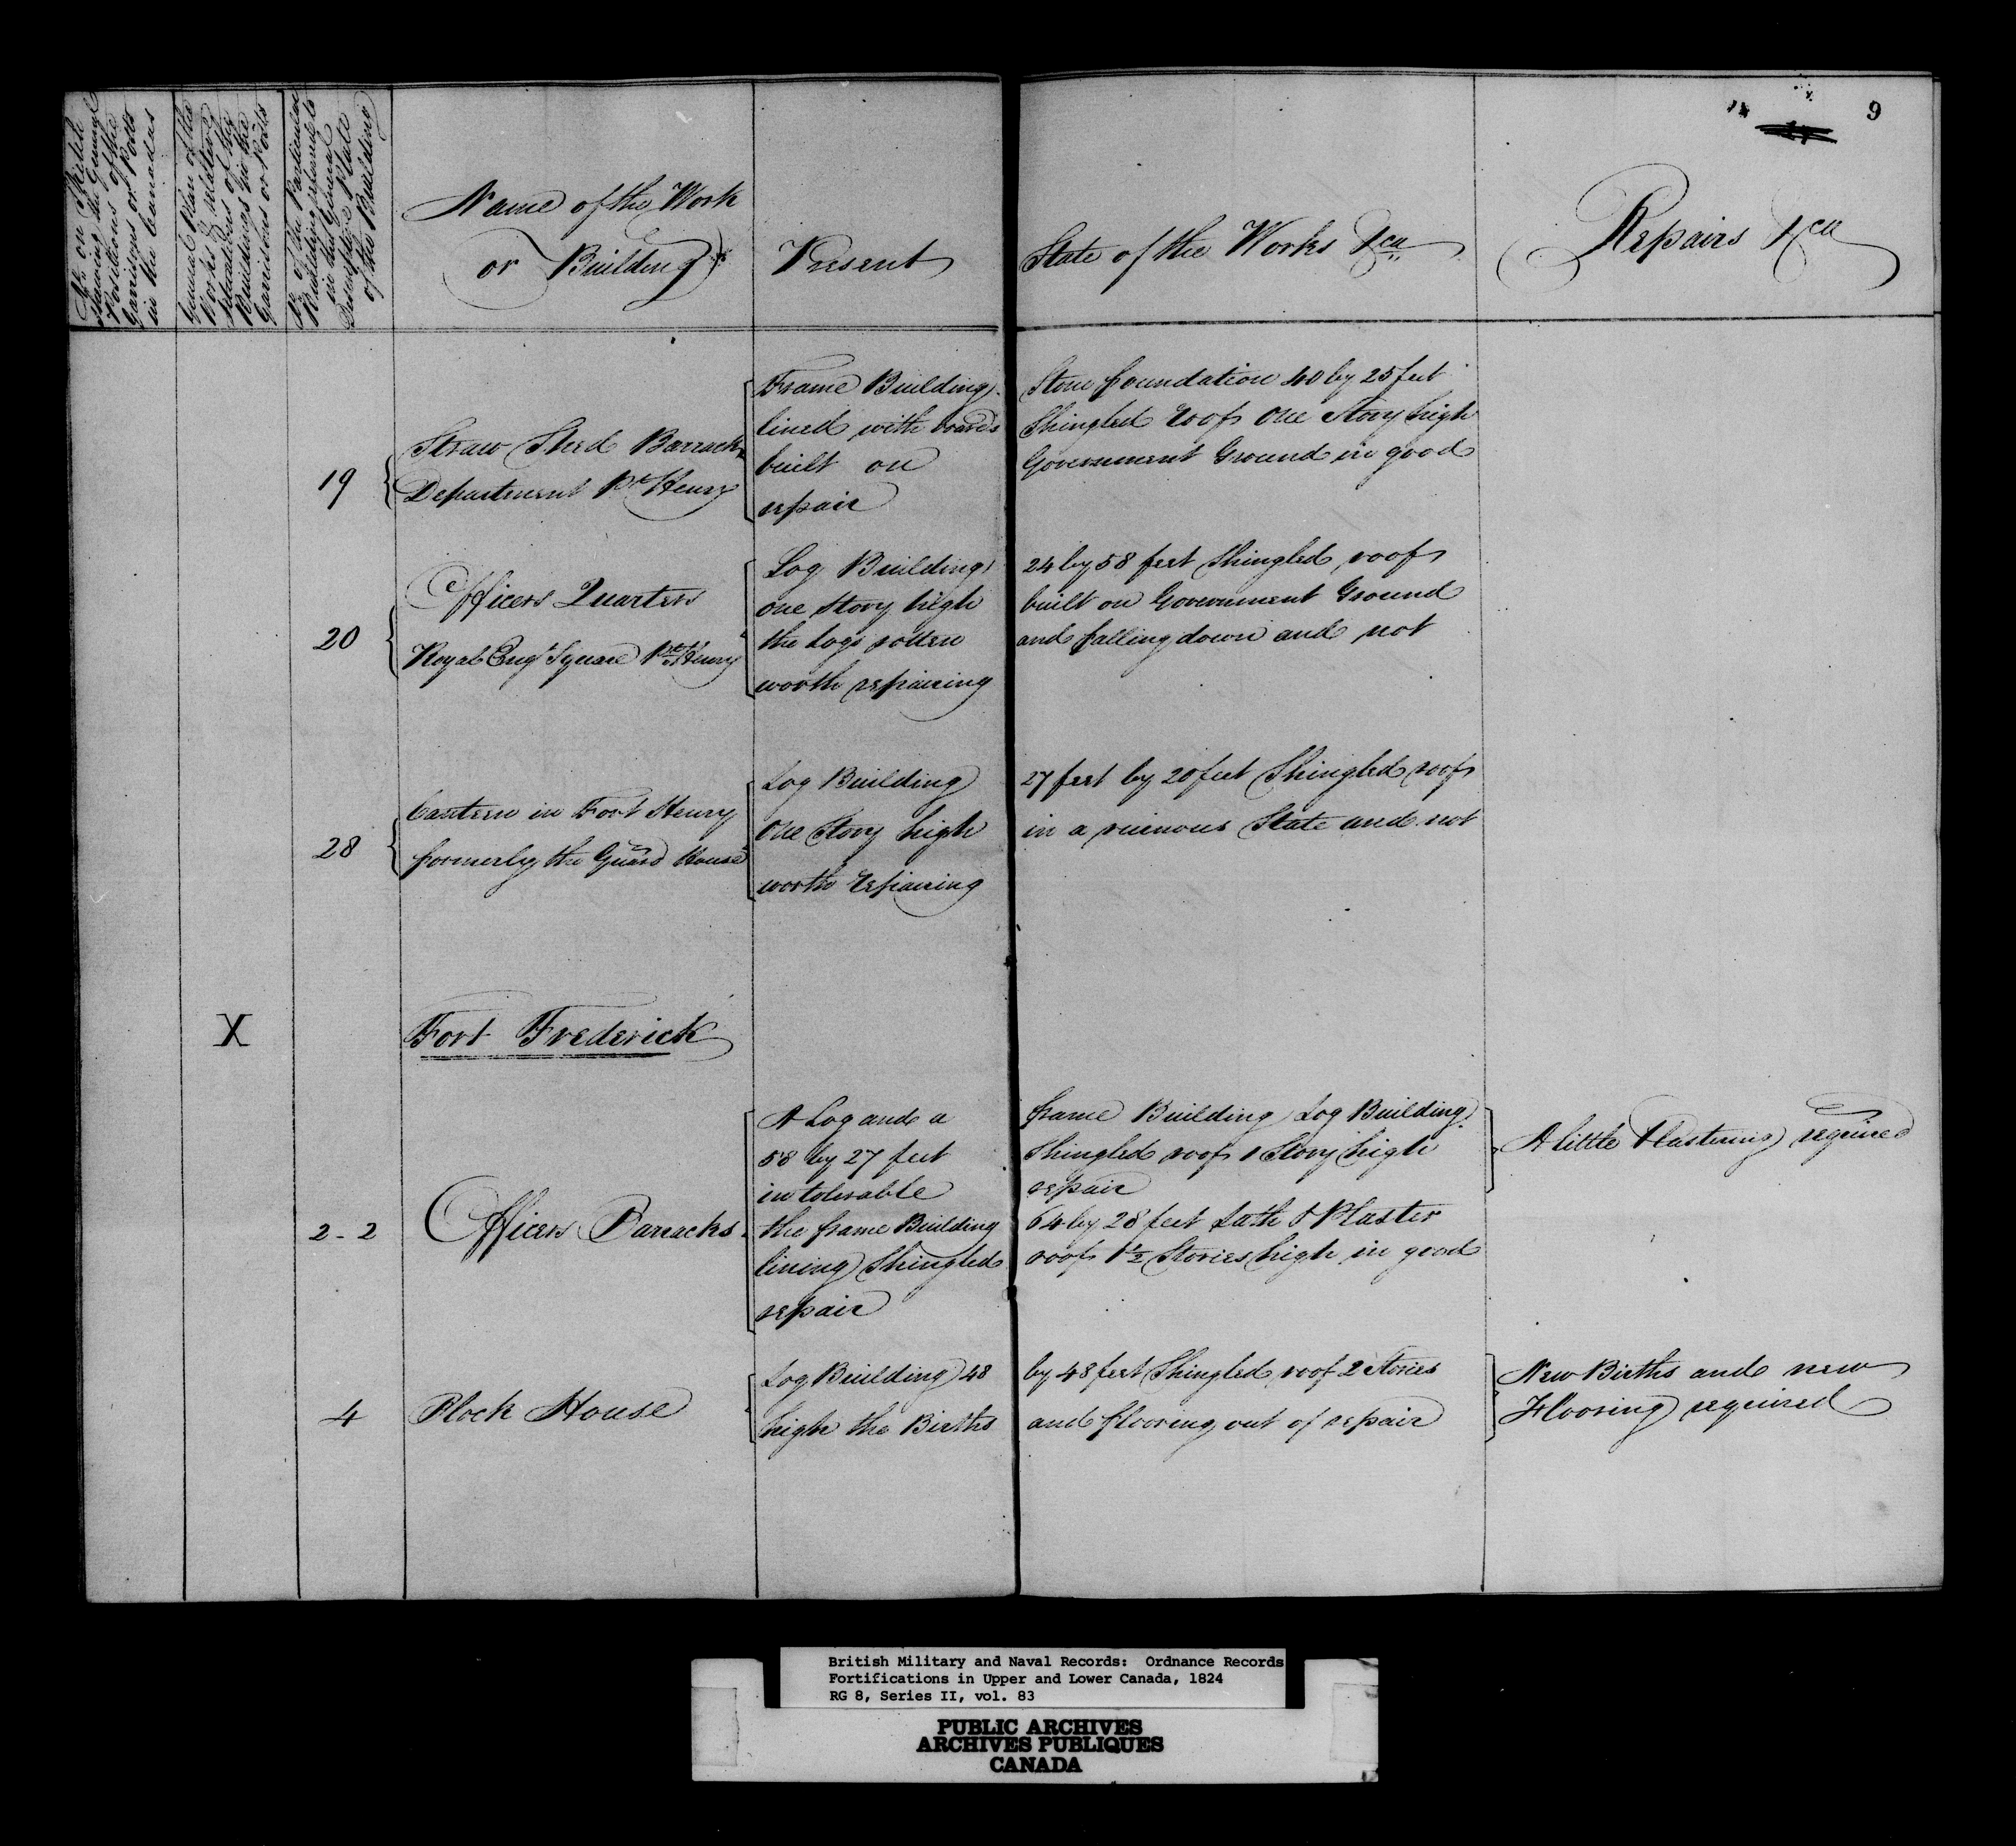 9
No. on Sketch
shewing the General
Positions of the
Garrisons or Posts
in the Canadas
General Plan of the
Works & relative
Situations of the
Buildings in the
Garrisons or Posts
No. of the Particular
Building referred to
in the General
Descriptive State
of the Building
Name of the Work
or Building
Present State of the Works &ca
Repairs &ca
19
Straw Shed Barrack
Department Pt. Henry
Frame Building Stone foundation 40 by 25 feet
lined with boards Shingled roof One Story high
built on Government Ground in good
repair
20
Officers Quarters
Royal Engrs Square Pt. Henry
Log Building 24 by 58 feet Shingled roof
one story high built on Government Ground
the Logs rotten and falling down and not
worth repairing
28
Canteen in Fort Henry
formerly the Guard House
Log Building 27 feet by 20 feet Shingled roof
One Story high in a ruinous State and not
worth repairing
X
Fort Frederick
2-2
Officers Barracks
A Log and a frame Building Log Building
58 by 27 feet Shingled roof 1 Story high
in tolerable repair
the frame Building 64 by 28 feet Lath & Plaster
lining Shingled roof 1½ Stories high in good
repair
A little Plastering required
4
Block House
Log Building 48 by 48 feet Shingled roof 2 Stories
high the Births and flooring out of repair
New Births and new
Flooring required
British Military and Naval Records: Ordnance Records
Fortifications in Upper and Lower Canada, 1824
RG 8, Series II, vol. 83
PUBLIC ARCHIVES
ARCHIVES PUBLIQUES
CANADA